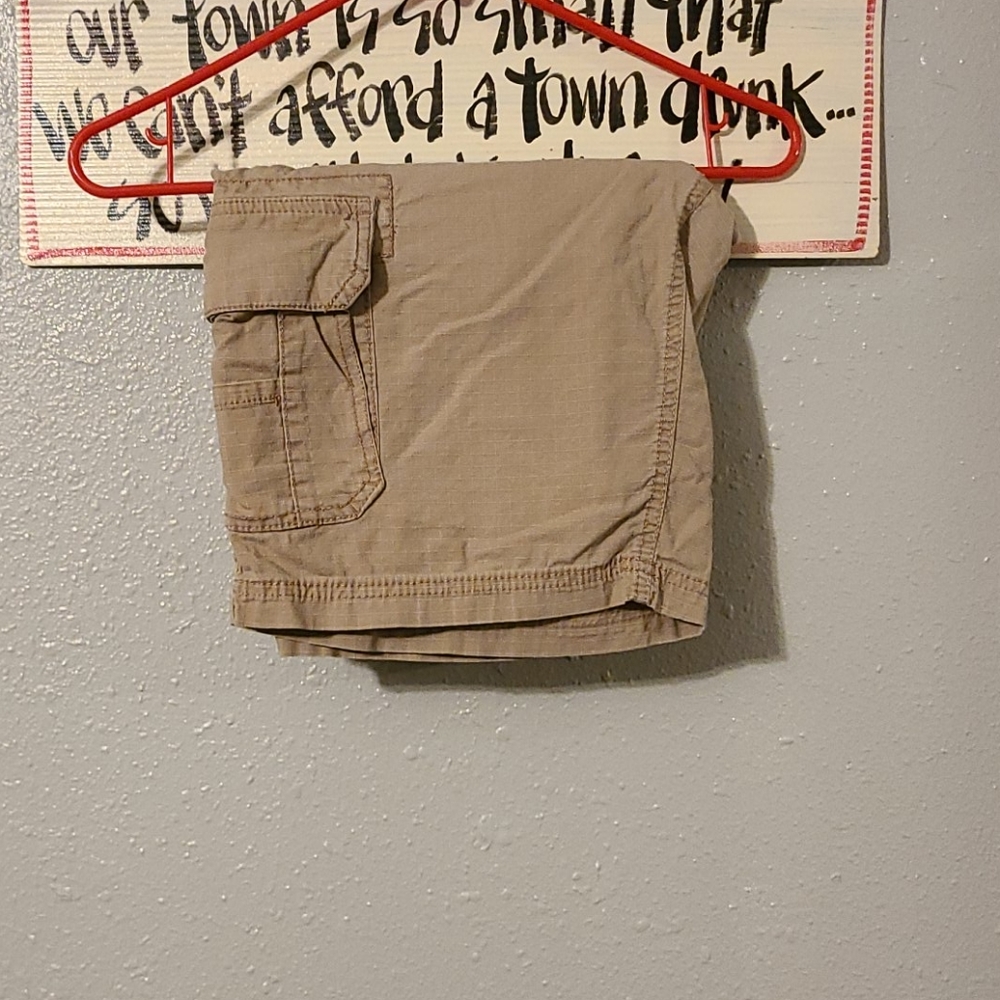 our town is so small that
we can't afford a town drunk...
so